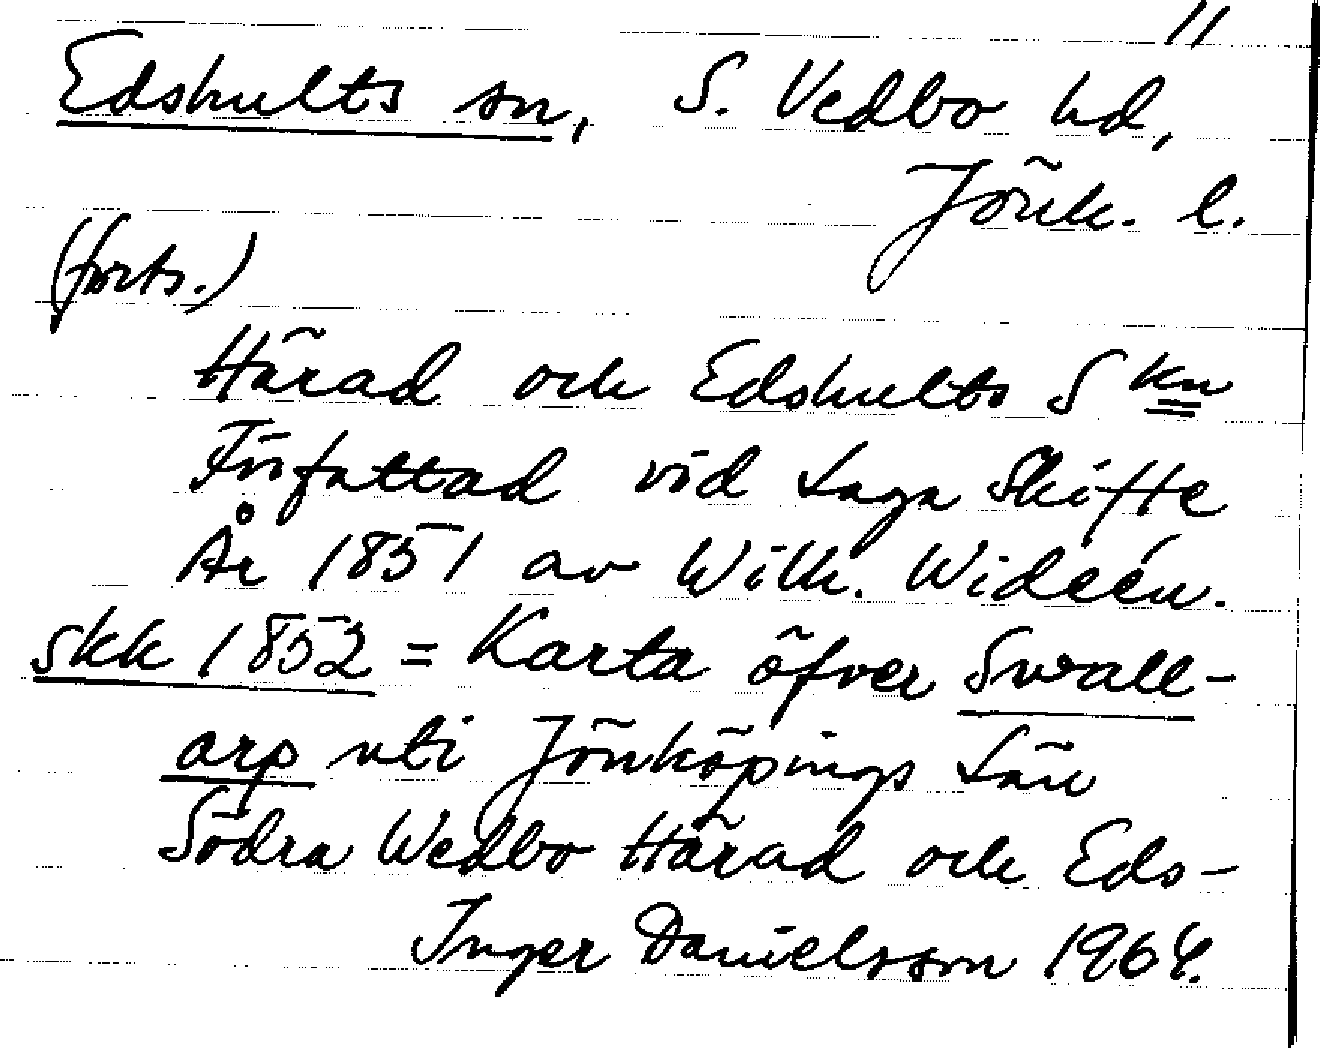 11
Edshults sn, S. Vedbo hd,
Jönk. l.
(forts.)
Härad och Edshults Skn
Författad vid Laga Skifte
År 1851 av Wilh. Wideén.
skk 1852 = Karta öfver Swall-
arp uti Jönköpings Län
Södra Wedbo Härad och Eds-
Inger Danielsson 1964.